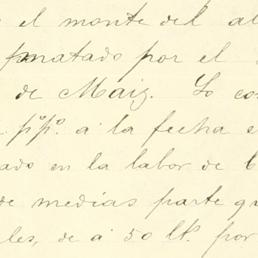 el monte del al
matado por el
de Maiz. Lo con
p.º p.º á la fecha e
ado en la labor de
de medias parte qu
les, de á 50 lt. por